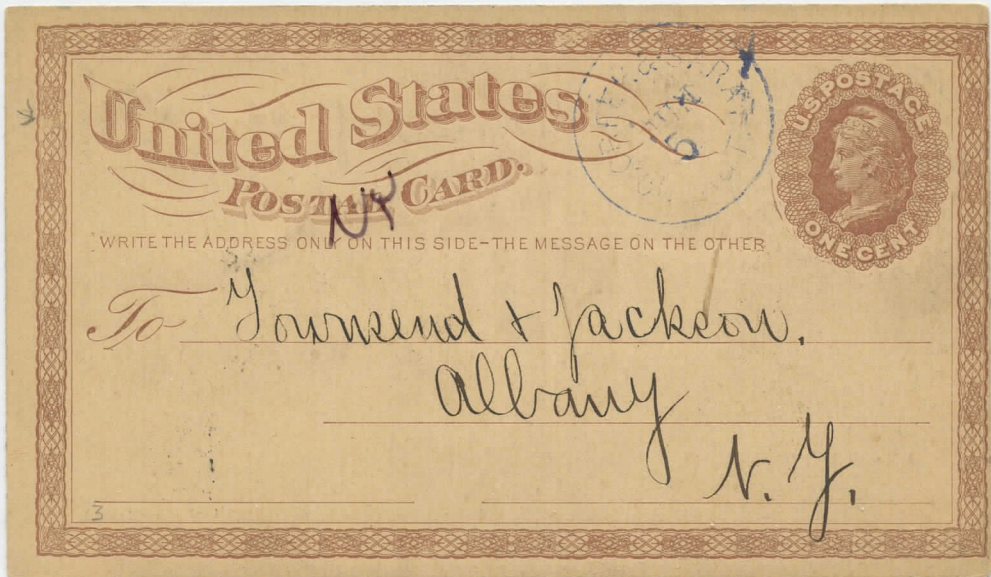 United States
POSTAL CARD.
U.S. POSTAGE
ONE CENT
NY
WRITE THE ADDRESS ONLY ON THIS SIDE-THE MESSAGE ON THE OTHER
To Townsend & Jackson.
Albany
N. Y.
3